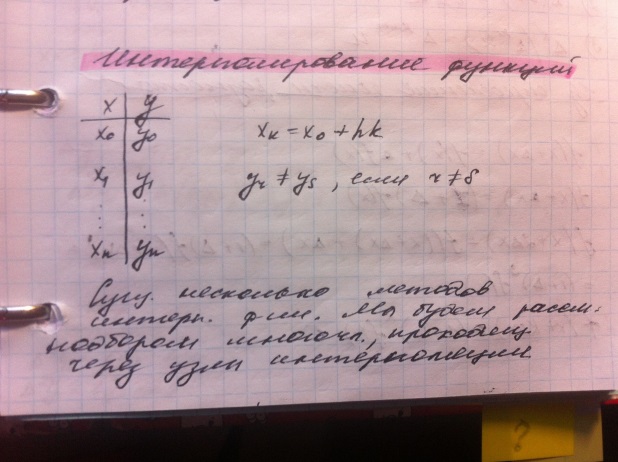 Интерполирование функций
x y
x₀ y₀ xₖ = x₀ + hk
x₁ y₁ yᵣ ≠ yₛ, если r ≠ s
⋮ ⋮
xₙ yₙ
Сущ. несколько методов
интерп. ф-ии. Мы будем рассм.
подбором многочл., проходящ
через узлы интерполяции
?